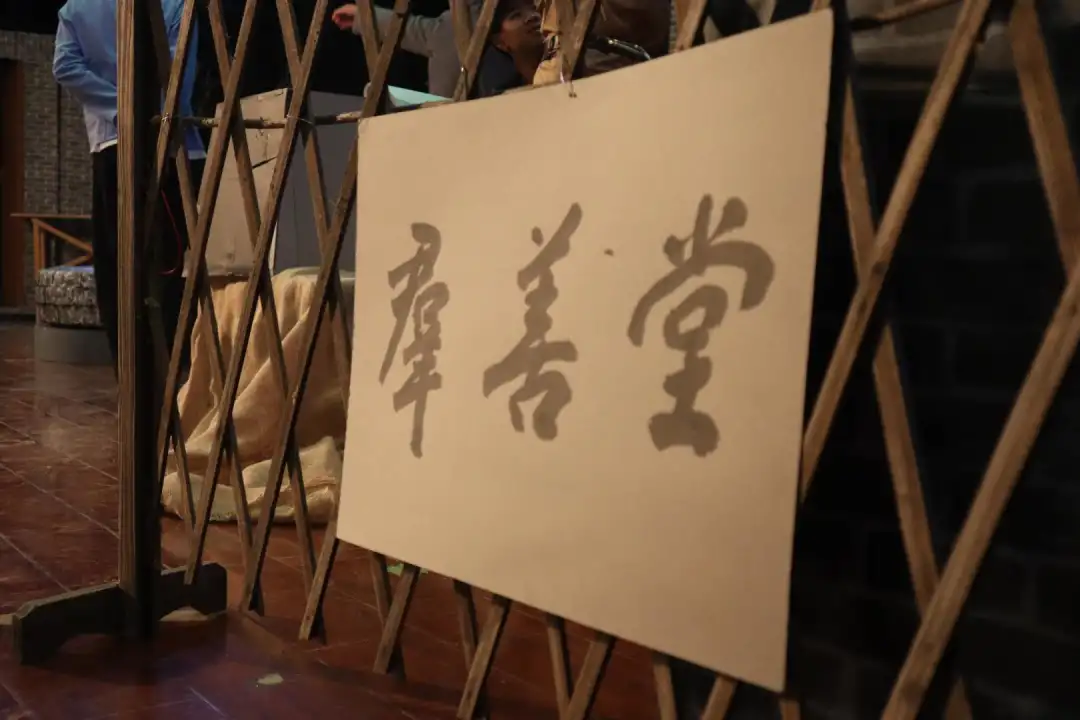 羣善堂